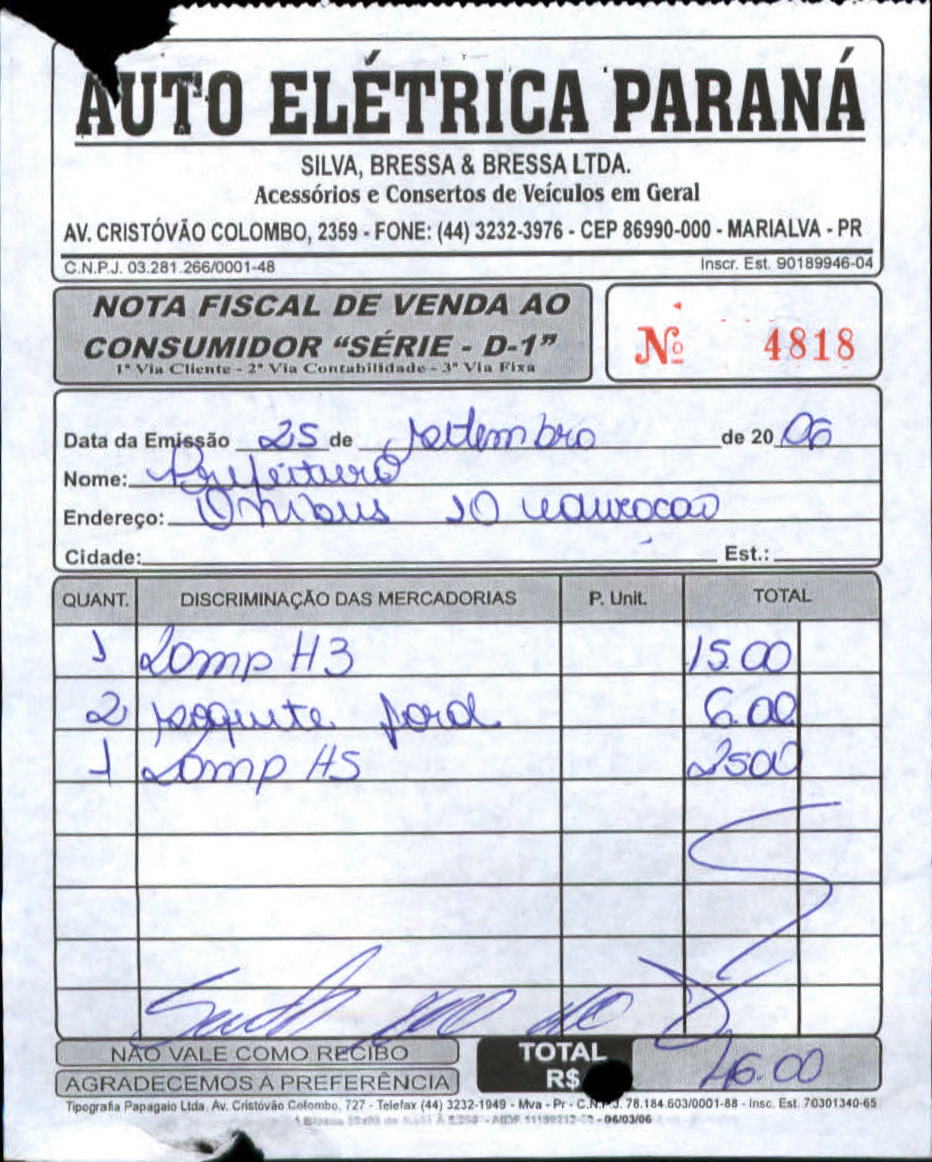 AUTO ELÉTRICA PARANÁ
SILVA, BRESSA & BRESSA LTDA.
Acessórios e Consertos de Veículos em Geral
AV. CRISTÓVÃO COLOMBO, 2359 - FONE: (44) 3232-3976 - CEP 86990-000 - MARIALVA - PR
C.N.P.J. 03.281.266/0001-48 Inscr. Est. 90189946-04
NOTA FISCAL DE VENDA AO
CONSUMIDOR "SÉRIE - D-1"
1ª Via Cliente - 2ª Via Contabilidade - 3ª Via Fixa
Nº 4818
Data da Emissão 25 de setembro de 20 06
Nome: Prefeitura
Endereço: Onibus 10 educação
Cidade: Est.:
QUANT. DISCRIMINAÇÃO DAS MERCADORIAS P. Unit. TOTAL
1 Lamp H3 15.00
2 soquete farol 6.00
1 Lamp H5 2500
NÃO VALE COMO RECIBO
AGRADECEMOS A PREFERÊNCIA
TOTAL R$ 46.00
Tipografia Papagaio Ltda, Av. Cristóvão Colombo, 727 - Telefax (44) 3232-1949 - Mva - Pr - C.N.P.J. 78.184.603/0001-88 - Insc. Est. 70301340-65
- 06/03/06